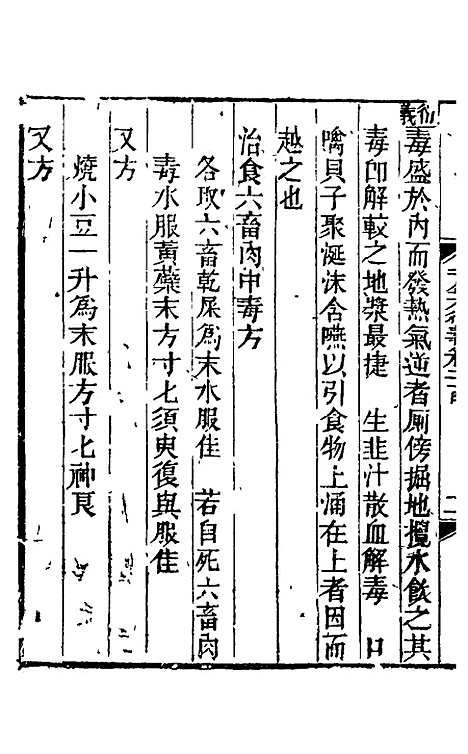 衍義
毒盛於內而發熱氣逆者厠傍掘地攪水飮之其
毒卽解較之地漿最捷　生韭汁散血解毒　口
噙貝子聚涎沫含嚥以引食物上涌在上者因而
越之也
治食六畜肉中毒方
各取六畜乾屎爲末水服佳　若自死六畜肉
毒水服黃蘗末方寸匕須臾復與服佳
又方
燒小豆一升爲末服方寸匕神良
又方